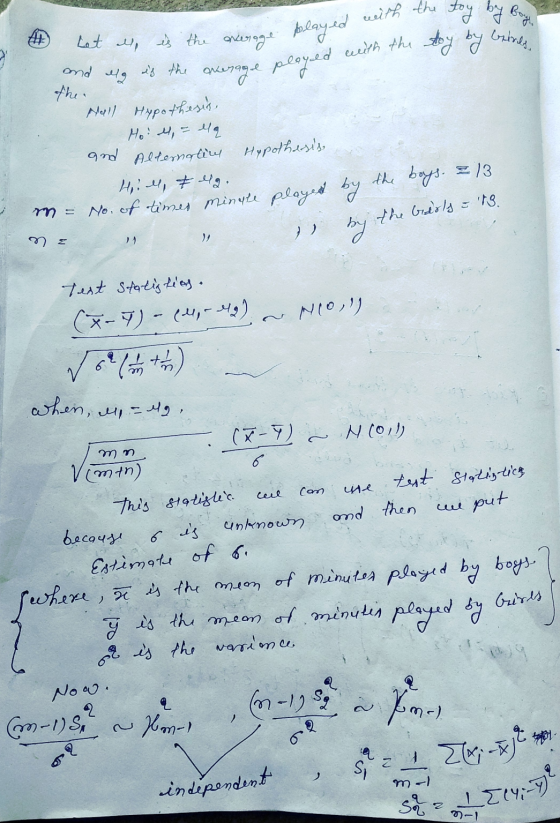 # Let μ₁ is the average played with the toy by Boys
and μ₂ is the average played with the toy by Girls.
the.
Null Hypothesis.
H₀: μ₁ = μ₂
and Alternative Hypothesis.
H₁: μ₁ ≠ μ₂.
m = No. of times minute played by the boys. = 13
n = " " " by the Girls = 13.
Test Statistics.
((x̄ - ȳ) - (μ₁ - μ₂)) / √(σ²(1/m + 1/n)) ~ N(0,1)
when, μ₁ = μ₂,
√(mn/(m+n)) · (x̄ - ȳ)/σ ~ N(0,1)
This statistic we can use test statistics
because σ is unknown and then we put
Estimate of σ.
{where, x̄ is the mean of minutes played by boys.
ȳ is the mean of minutes played by Girls
σ² is the variance.}
Now.
(m-1)S₁²/σ² ~ χ²m-1 , (n-1)S₂²/σ² ~ χ²n-1
independent , S₁² = 1/(m-1) Σ(xᵢ - x̄)²
S₂² = 1/(n-1) Σ(yᵢ - ȳ)²